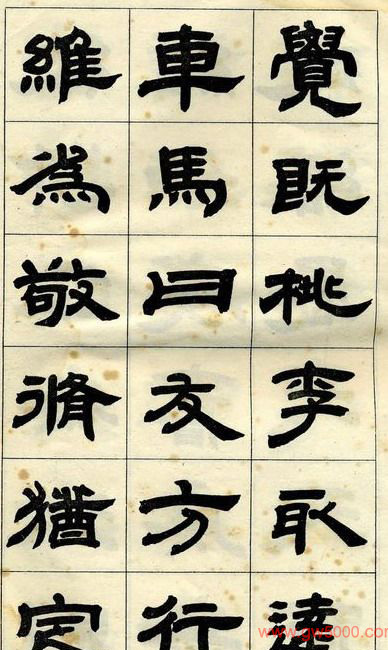 覺既桃李取達
車馬曰友方行
維為敬脩猶定
www.gw5000.com